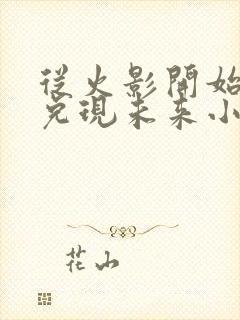 從火影開始
兌現未來小
花山